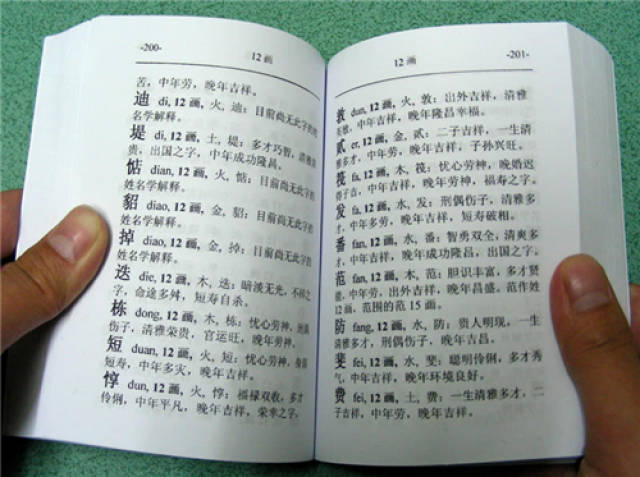 -200-
12画
苦，中年劳，晚年吉祥。
迪 di, 12 画, 火, 迪：目前尚无此字的
姓名学解释。
堤 di, 12 画, 土, 堤：多才巧智，清雅荣
贵，出国之字，中年成功隆昌。
惦 dian, 12 画, 火, 惦：目前尚无此字的
姓名学解释。
貂 diao, 12 画, 金, 貂：目前尚无此字的
姓名学解释。
掉 diao, 12 画, 金, 掉：目前尚无此字的
姓名学解释。
迭 die, 12 画, 木, 迭：暗淡无光，不祥之
字，命途多舛，短寿自杀。
栋 dong, 12 画, 木, 栋：忧心劳神，
伤子，清雅荣贵，官运旺，晚年劳神。
短 duan, 12 画, 火, 短：忧心劳神，
短寿，中年多灾，晚年吉祥。
惇 dun, 12 画, 火, 惇：福禄双收，多才
伶俐，中年平凡，晚年吉祥，荣幸之字，
12画
-201-
敦 dun, 12 画, 火, 敦：出外吉祥，清雅
英敏，中年吉祥，晚年隆昌幸福。
贰 er, 12 画, 金, 贰：二子吉祥，一生清
雅多才，中年劳，晚年吉祥，子孙兴旺。
筏 fa, 12 画, 木, 筏：忧心劳神，晚婚迟
得子吉，中年吉祥，晚年劳神，福寿之字。
发 fa, 12 画, 水, 发：刑偶伤子，清雅多
才，中年多劳，晚年吉祥，短寿破相。
番 fan, 12 画, 水, 番：智勇双全，清爽多
才，中年吉祥，晚年成功隆昌，出国之字。
范 fan, 12 画, 木, 范：胆识丰富，多才贤
能，中年吉祥，晚年昌盛。范作姓
12画，范围的范 15 画。
防 fang, 12 画, 水, 防：贵人明现，一生
清雅多才，刑偶伤子，晚年吉昌。
斐 fei, 12 画, 水, 斐：聪明伶俐，多才秀
气，中年吉祥，晚年环境良好。
费 fei, 12 画, 土, 费：一生清雅多才，二
子吉祥，中年劳，晚年吉祥。